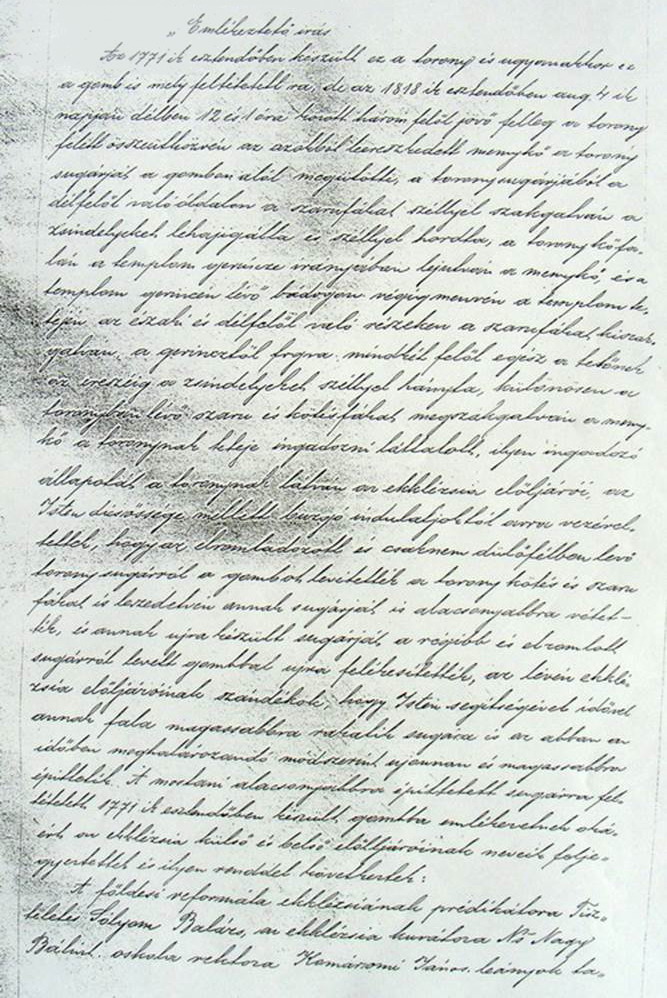 „Emlékeztető irás
Az 1771 ik esztendőben készült ez a torony és ugyanakkor ez
a gomb is mely feltétetett rá, de az 1818 ik esztendőben aug 4 ik
napján délben 12 és 1 óra között három felől jövő felleg a torony
felett összeütközvén az azokból leereszkedett menykő a torony
sugárját a gombon alól megütötte, a torony sugárjából a
délfelől való oldalon a szarufákat széllyel szakgatván a
zsindelyeket lehajigálta és széllyel hordta, a torony kőfa-
lán a templom gerincze irányában lejutván a menykő, és a
templom gerincén lévő bádogon végigmenvén a templom te-
tején az északi és délfelől való részeken a szarufákat kiszag-
gatván, a gerincztől fogva mindkét felől egész a tetőnek
az ereszéig a zsindelyeket széllyel hányta, különösen a
toronyban lévő szaru és kötésfákat megszakgatván a meny-
kő a toronynak teteje ingadozni láttatott, ilyen ingadozó
állapotát a toronynak látván az ekklézsia előljárói, az
Isten dicsőssége mellett buzgó indulatjoktól arra vezérel-
tettek, hogy az elromladozott és csaknem dülőfélben levő
torony sugárról a gombot levétették a torony kötés és szaru
fákat is leszedetvén annak sugárját is alacsonyabbra vétet-
ték, és annak ujra készült sugárját, a régibb és elromlott
sugárról levett gombbal ujra felékesítették, az lévén ekklé-
zsia előljáróinak szándékok, hogy Isten segítségével idővel
annak fala magassabbra rakatik sugára is az abban az
időben meghatározandó módszerint ujonnan és magassabbra
építtetik. A mostani alacsonyabbra építtetett sugárra fel-
tétetett 1771 ik esztendőben készült gombba emlékezetnek oká-
ért az ekklézsia külső és belső előlljáróinak neveik felje-
gyeztettek és ilyen renddel következtek:
A földesi reformáta ekklézsiának prédikátora Tisz-
teletes Sólyom Balázs, az ekklézsia kurátora Ns Nagy
Bálint, oskola rektora Komáromi János, leányok ta-